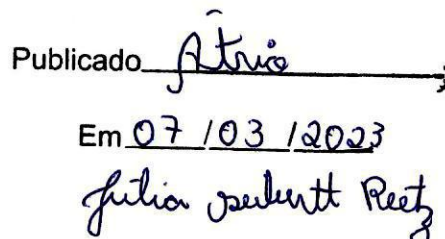 Publicado Átrio
Em 07 / 03 / 2023
Julia Reetz